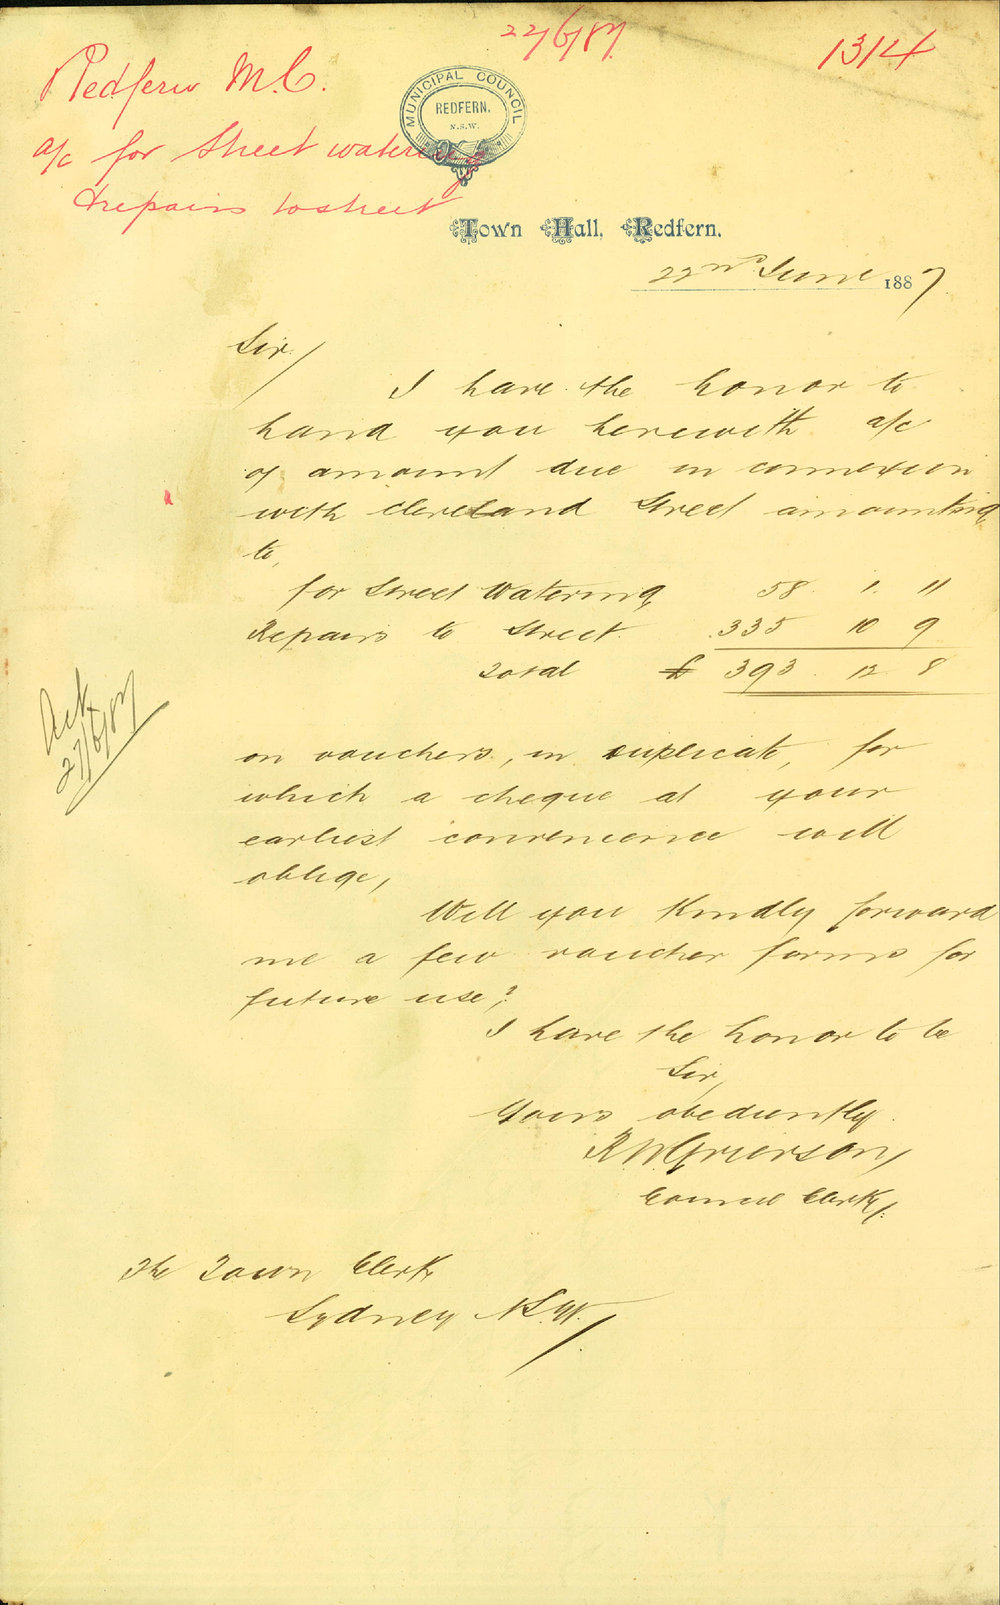 22/6/87.
1314
Redfern M.C.
a/c for Street watering
& repairs to street
MUNICIPAL COUNCIL
REDFERN.
N.S.W.
Town Hall, Redfern.
22nd June 1887
Sir/
I have the honor to
hand you herewith a/c
of amount due in connexion
with Cleveland Street amounting
to,
for Street Watering 58. 1. 11
Repairs to Street. 335 10 9
Total £ 393. 12. 8
Ack
27/6/87
on vouchers, in duplicate, for
which a cheque at your
earliest convenience will
oblige,
Will you kindly forward
me a few voucher forms for
future use?
I have the honor to be
Sir,
Yours obediently.
R W Grierson/
Council Clerk/.
The Town Clerk
Sydney N.S.W./